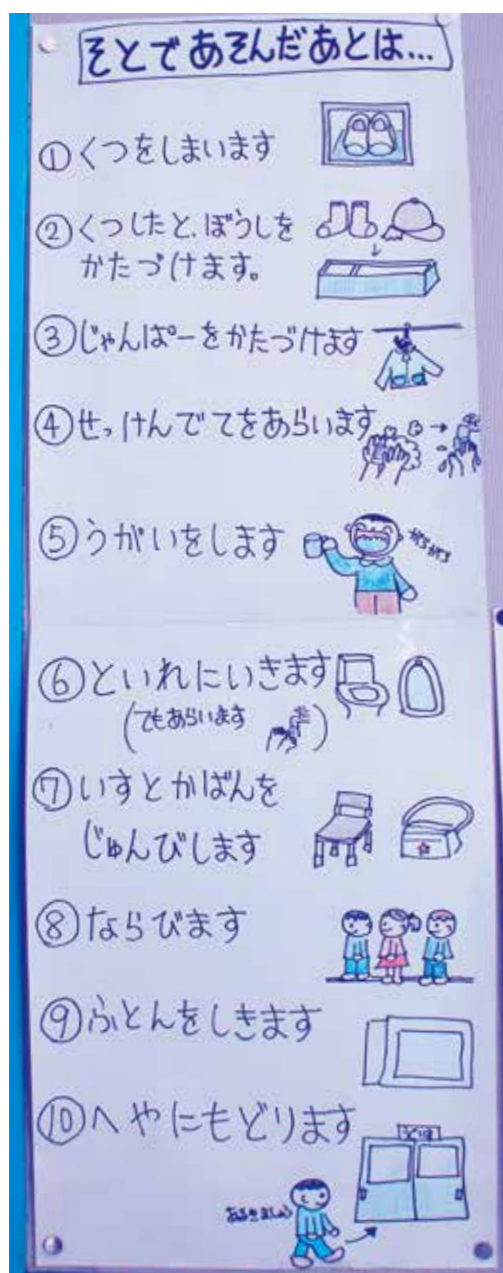 そとであそんだあとは...
①くつをしまいます
②くつしたと、ぼうしを
かたづけます。
③じゃんぱーをかたづけます
④せっけんでてをあらいます
⑤うがいをします
がらがら
⑥といれにいきます
(てもあらいます)
⑦いすとかばんを
じゅんびします
⑧ならびます
⑨ふとんをしきます
⑩へやにもどります
あるきましょう